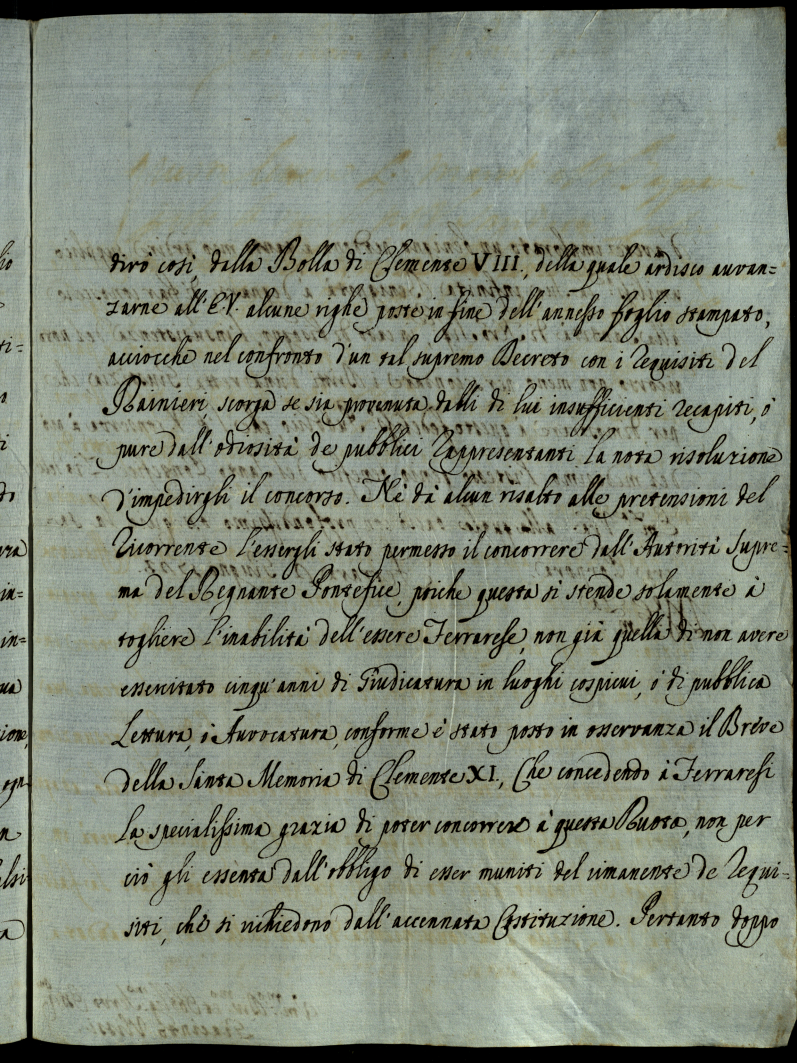 dirò così dalla Bolla di Clemente VIII., della quale ardisco auvan=
zarne all'E.V. alcune righe poste in fine dell'annesso foglio stampato,
acciocche nel confronto d'un tal supremo Decreto con i requisiti del
Rainieri, scorga se sia provenuta dalli di lui insufficienti recapiti, ò
pure dall'odiosità de pubblici Rappresentanti la nota risoluzione
d'impedirgli il concorso. Nè dà alcun risalto alle pretensioni del
Ricorrente l'essergli stato permesso il concorrere dall'Autorità Supre=
ma del Regnante Pontefice, poiche questa si stende solamente à
togliere l'inabilità dell'essere Ferrarese, non già quella di non avere
essercitato cinqu'anni di Giudicatura in luoghi cospicui, ò di pubblica
Lettura, ò Auvocatura, conforme è stato posto in osservanza il Breve
della Santa Memoria di Clemente XI., Che concedendo à Ferraresi
la specialissima grazia di poter concorrere à questa Ruota, non per
ciò gli essenta dall'obbligo di esser muniti del rimanente de requi=
siti, che si richiedono dall'accennata Costituzione. Pertanto doppo